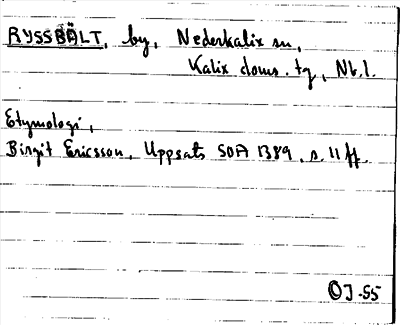 RYSSBÄLT, by, Nederkalix sn,
Kalix doms. tg, Nb.l.
Etymologi,
Birgit Ericsson, Uppsats SOA 1389, s. 11 ff.
OJ-55